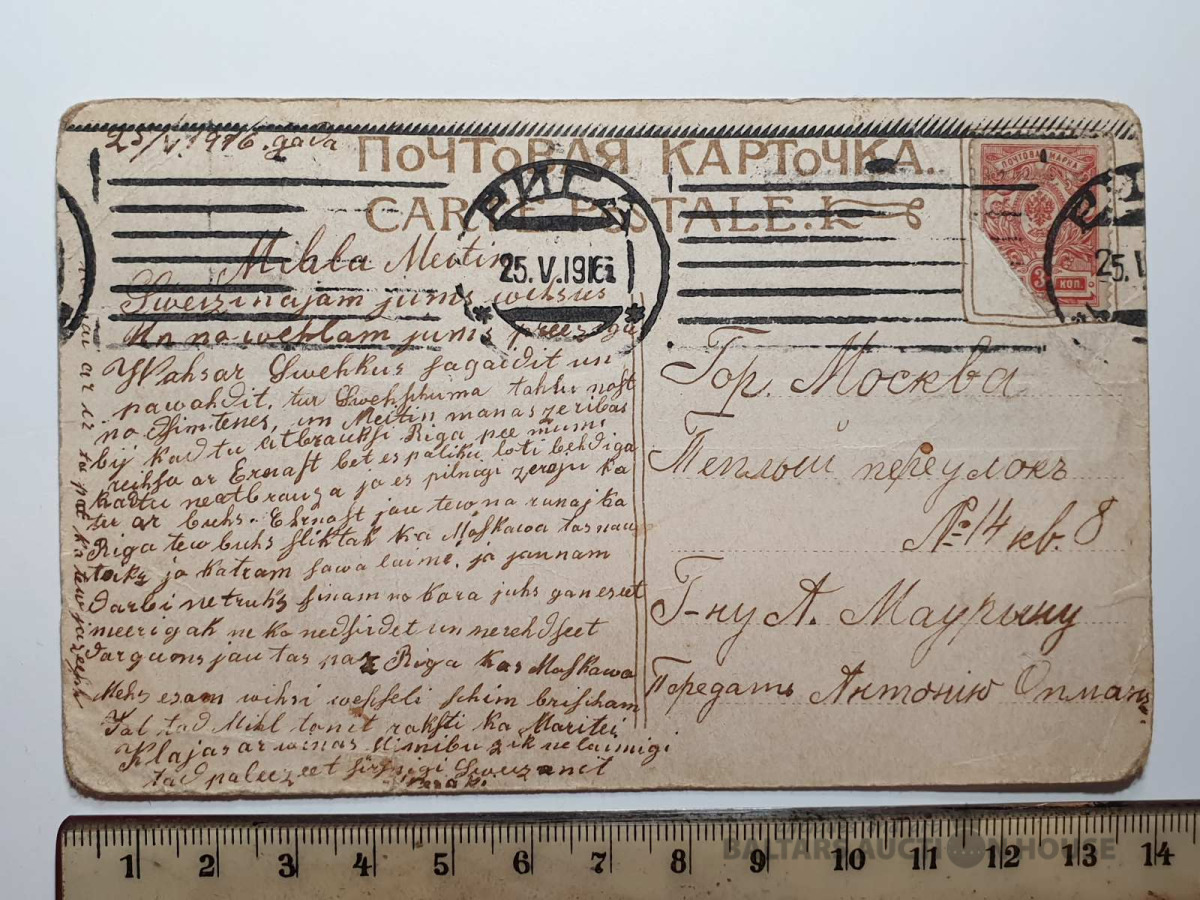 25/V. 1916. gada
ПОЧТОВАЯ КАРТОЧКА.
CARTE POSTALE.
РИГА
25.V.1916
ПОЧТОВАЯ МАРКА
3 КОП.
25.V
Mihla Meitin
Sweizinajam jums wehsus
un nowehlam jums preezigu
Wahsar Swehkus sagaidit un
pawahdit, tur Swehschuma tahlu nost
no dsimtenes, un Meitin manas zeribas
bij kad tu atbrauksi Riga pee mums
reihsa ar Ernast bet es paliku loti behdiga
kad tu neatbrauza ja es pilnigi zereju ka
tu ar buhs. Ehrnast jau tew na runaj ka
Riga tew buhs sliktak ka Maskawa tas nau
teikz jo katram sawa laime, ja jaunam
darbi netruhks sinam no kara juhs gan eseet
meerigak ne ka nedsirdet un neredseet
dargums jau tas paz Riga kas Maskawa
Mehs esam wihsi wesseli schim brischam
Tal tad Mihl tanit raksti ka Maritei
Klajas ar winas
tad paleezeet sirsnigi Sweizanit
Гор. Москва
Теплый переулокъ
№14 кв. 8
Г-ну А. Маурыну
Передать Антонiю Опмань.
1 2 3 4 5 6 7 8 9 10 11 12 13 14
BALTARS AUCTION HOUSE